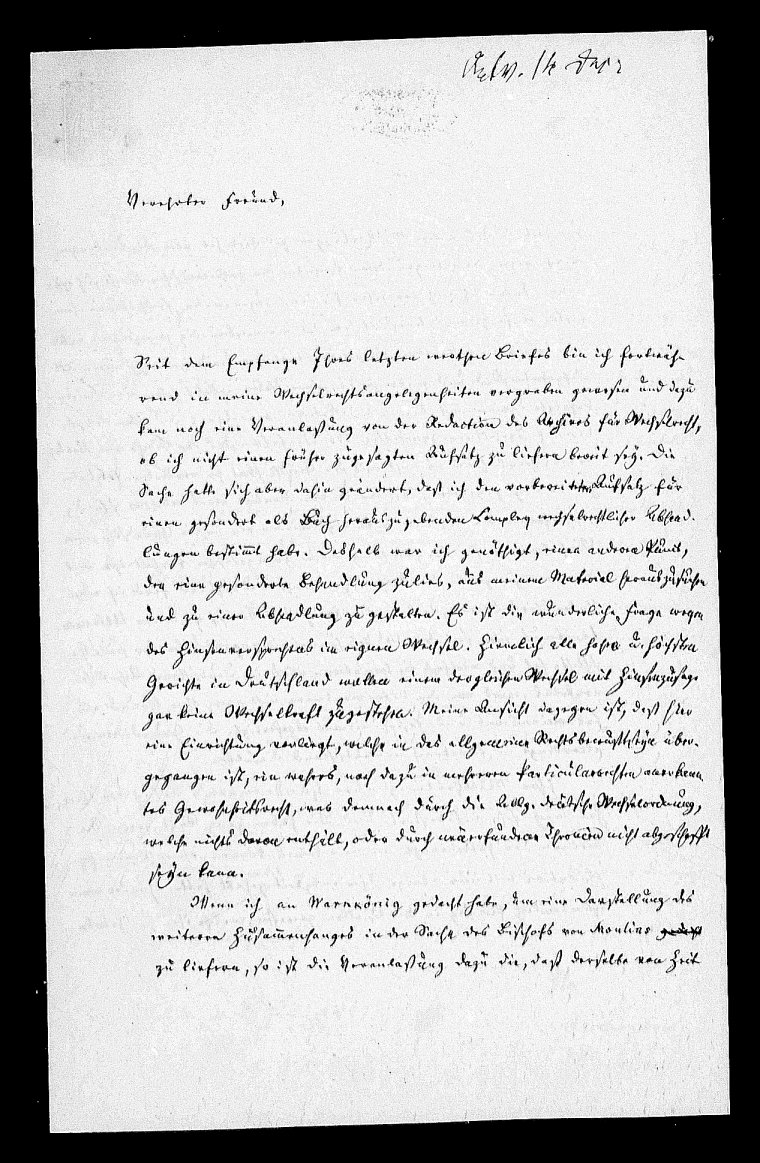 Verehrter Freund,
Seit dem Empfange Ihres letzten werthen Briefes bin ich fortwäh-
rend in meine Wechselrechtsangelegenheiten vergraben gewesen und dazu
kam noch eine Veranlaßung von der Redaction des Archives für Wechselrecht,
ob ich nicht einen früher zugesagten Aufsatz zu liefern bereit sey. Die
Sache hatte sich aber dahin geändert, daß ich den vorbereiteten Aufsatz für
einen gesondert als Buch herauszugebenden Complex wechselrechtlicher Abhand-
lungen bestimmt habe. Deshalb war ich genöthigt, einen andern Punct,
der eine gesonderte Behandlung zuließ, aus meinem Material herauszusuchen
und zu einer Abhandlung zu gestalten. Es ist die wunderliche Frage wegen
des Zinsenversprechens im eignen Wechsel. Ziemlich alle hohen u. höchsten
Gerichte in Deutschland wollen einem dergleichen Wechsel mit Zinsenzusage
gar keine Wechselkraft zugestehen. Meine Ansicht dagegen ist, daß hier
eine Einrichtung vorliegt, welche in das allgemeine Rechtsbewußtseyn über-
gegangen ist, ein wahres, noch dazu in mehreren Particularrechten anerkann
tes Gewohnheitsrecht, was demnach durch die Allg. deutsche Wechselordnung,
welche nichts davon enthält, oder durch neuerfundene Theorien nicht abgeschafft
seyn kann.
Wenn ich an Warnkönig gedacht habe, um eine Darstellung des
weiteren Zusammenhanges in der Sache des Bischofs von Moulins
zu liefern, so ist die Veranlaßung dazu die, daß derselbe von Zeit